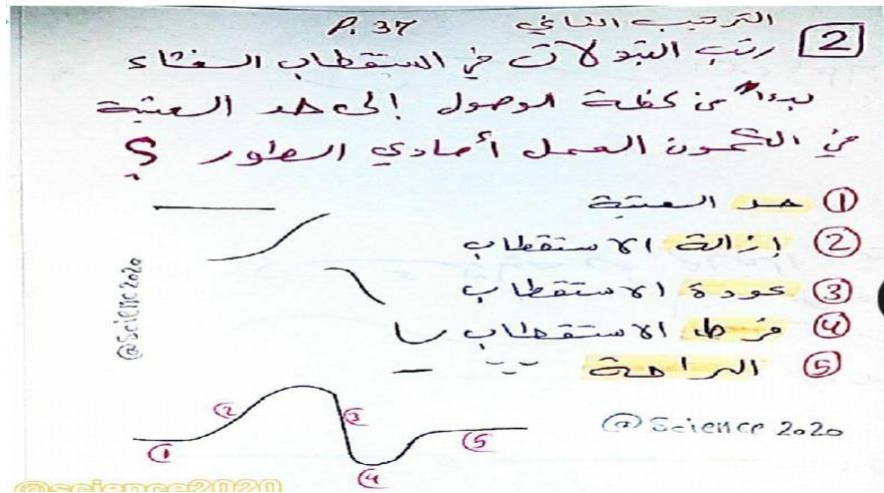 الترتيب الثاني P. 37
2 رتب التبدلات في استقطاب الغشاء
بدءاً من لحظة الوصول إلى حد العتبة
في الكمون العمل أحادي الطور ؟
① حد العتبة
② إزالة الاستقطاب
③ عودة الاستقطاب
④ فرط الاستقطاب
⑤ الراحة
@Science 2020
① ② ③ ④ ⑤
@Science 2020
@science2020